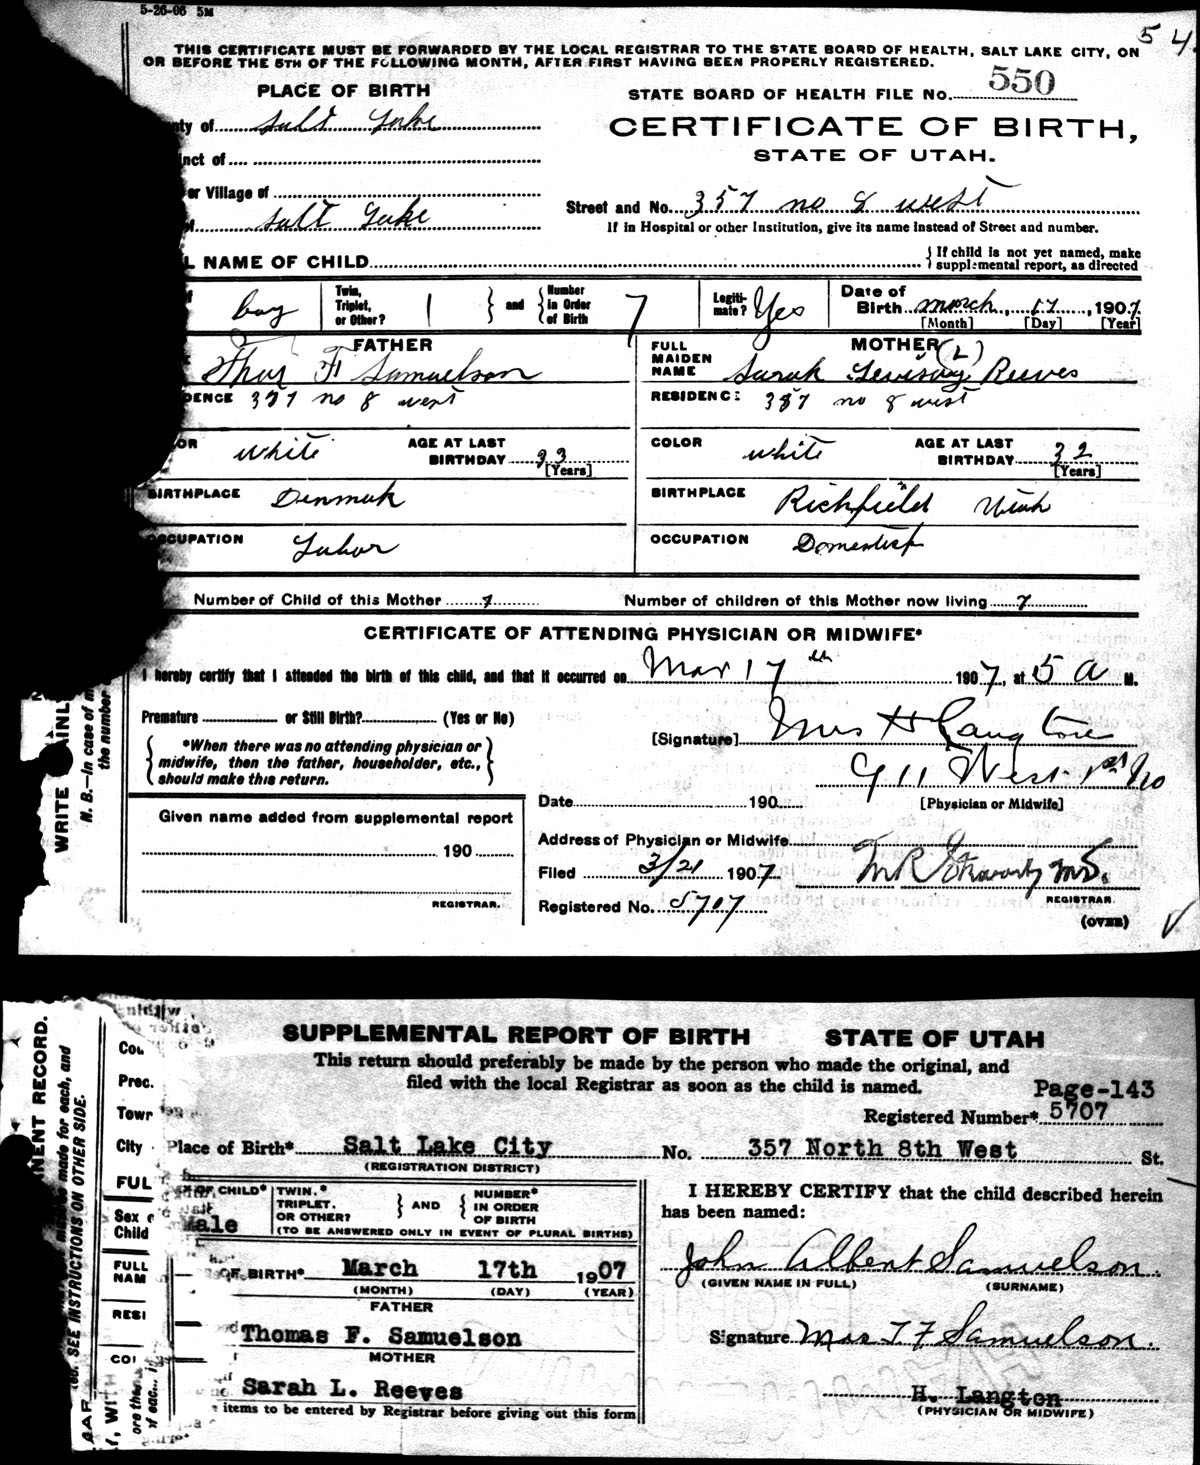 5-26-06 5M
5 4
THIS CERTIFICATE MUST BE FORWARDED BY THE LOCAL REGISTRAR TO THE STATE BOARD OF HEALTH, SALT LAKE CITY, ON
OR BEFORE THE 5TH OF THE FOLLOWING MONTH, AFTER FIRST HAVING BEEN PROPERLY REGISTERED.
PLACE OF BIRTH
STATE BOARD OF HEALTH FILE No. 550
nty of Salt Lake
CERTIFICATE OF BIRTH,
STATE OF UTAH.
nct of
or Village of
Street and No. 357 no 8 west
Salt Lake
If in Hospital or other Institution, give its name instead of Street and number.
L NAME OF CHILD
{ If child is not yet named, make supplemental report, as directed
boy
Twin, Triplet, or Other? 1 } and { Number in Order of Birth 7
Legitimate? Yes
Date of Birth March, 17, 1907
[Month] [Day] [Year]
FATHER
Thos F Samuelson
FULL MAIDEN NAME
MOTHER (L)
Sarah Reeves
DENCE 357 no 8 west
RESIDENCE 357 no 8 west
OR White
AGE AT LAST BIRTHDAY 33 [Years]
COLOR White
AGE AT LAST BIRTHDAY 32 [Years]
BIRTHPLACE Denmark
BIRTHPLACE Richfield Utah
OCCUPATION Labor
OCCUPATION Domestick
Number of Child of this Mother 7
Number of children of this Mother now living 7
CERTIFICATE OF ATTENDING PHYSICIAN OR MIDWIFE*
I hereby certify that I attended the birth of this child, and that it occurred on Mar 17th 1907, at 5 A M.
Premature or Still Birth? (Yes or No)
[Signature] Mrs H Langton
*When there was no attending physician or midwife, then the father, householder, etc., should make this return.
911 West 1st No
[Physician or Midwife]
Date 190
Given name added from supplemental report
190
REGISTRAR.
Address of Physician or Midwife
Filed 3/21 1907
M.D.
REGISTRAR.
Registered No. 5707
(OVER)
WRITE
N. B.—In case of
the number
SUPPLEMENTAL REPORT OF BIRTH STATE OF UTAH
This return should preferably be made by the person who made the original, and
filed with the local Registrar as soon as the child is named.
Page-143
Registered Number* 5707
Place of Birth* Salt Lake City
(REGISTRATION DISTRICT)
No. 357 North 8th West St.
OF CHILD* Male
TWIN,* TRIPLET, OR OTHER? } AND { NUMBER* IN ORDER OF BIRTH
(TO BE ANSWERED ONLY IN EVENT OF PLURAL BIRTHS)
I HEREBY CERTIFY that the child described herein
has been named:
OF BIRTH* March 17th 1907
(MONTH) (DAY) (YEAR)
John Albert Samuelson.
(GIVEN NAME IN FULL) (SURNAME)
FATHER
Thomas F. Samuelson
Signature Mrs T F Samuelson.
MOTHER
Sarah L. Reeves
H. Langton
(PHYSICIAN OR MIDWIFE)
items to be entered by Registrar before giving out this form
NENT RECORD.
made for each, and
SEE INSTRUCTIONS ON OTHER SIDE.
Cou
Prec.
Towr
City
FUL
Sex
Child
FULL
NAM
RESI
COI